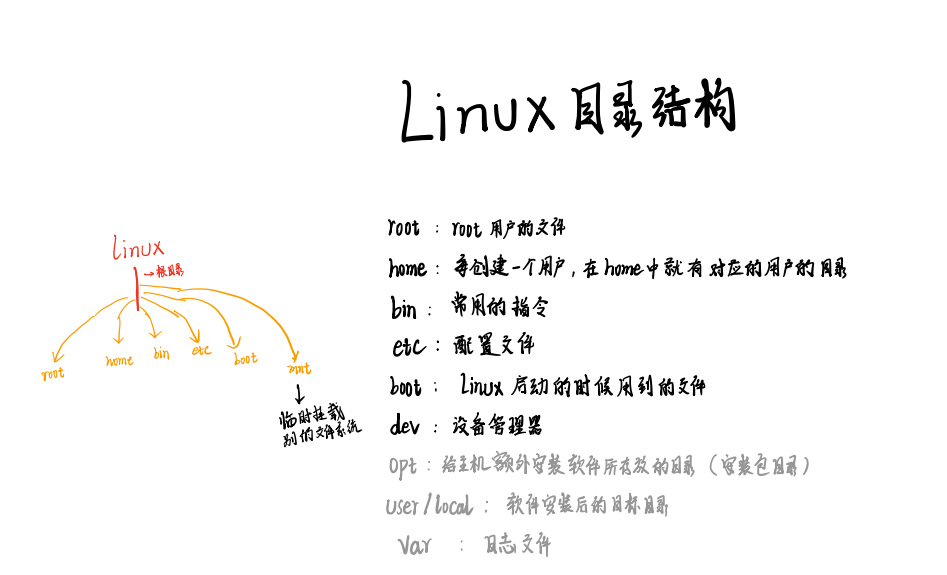 Linux 目录结构
Linux
→根目录
root
home
bin
etc
boot
mnt
临时挂载
别的文件系统
root : root 用户的文件
home : 每创建一个用户, 在home中就有对应的用户的目录
bin : 常用的指令
etc : 配置文件
boot : Linux 启动的时候用到的文件
dev : 设备管理器
opt : 给主机额外安装软件所存放的目录 (安装包目录)
user/local : 软件安装后的目标目录
var : 日志文件